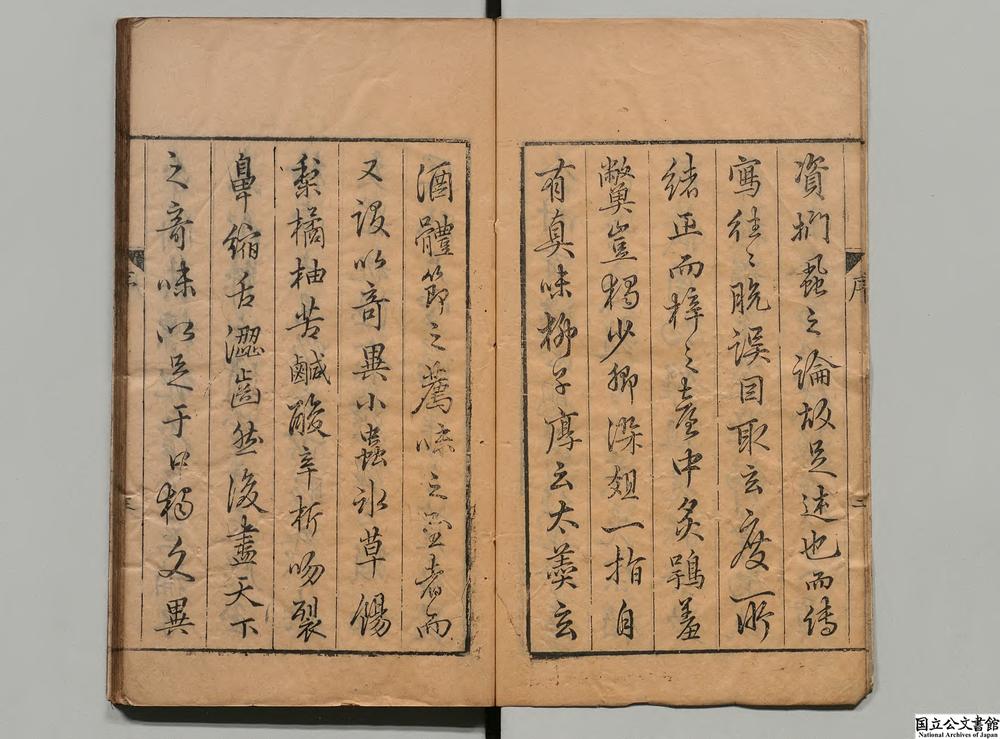 資捫蝨之論故足述也而傳
寫往〻脫誤因取云度所
緒正而梓之臺中炙鴞羞
鷩奠豈獨少卿染俎一指自
有真味柳子厚云太羹玄
酒體節之薦味之至者而
又設以奇異小蟲水草
梨橘柚苦鹹酸辛折吻裂
鼻縮舌澀齒然後盡天下
之奇味以足于口獨文異
序
二
国立公文書館
National Archives of Japan